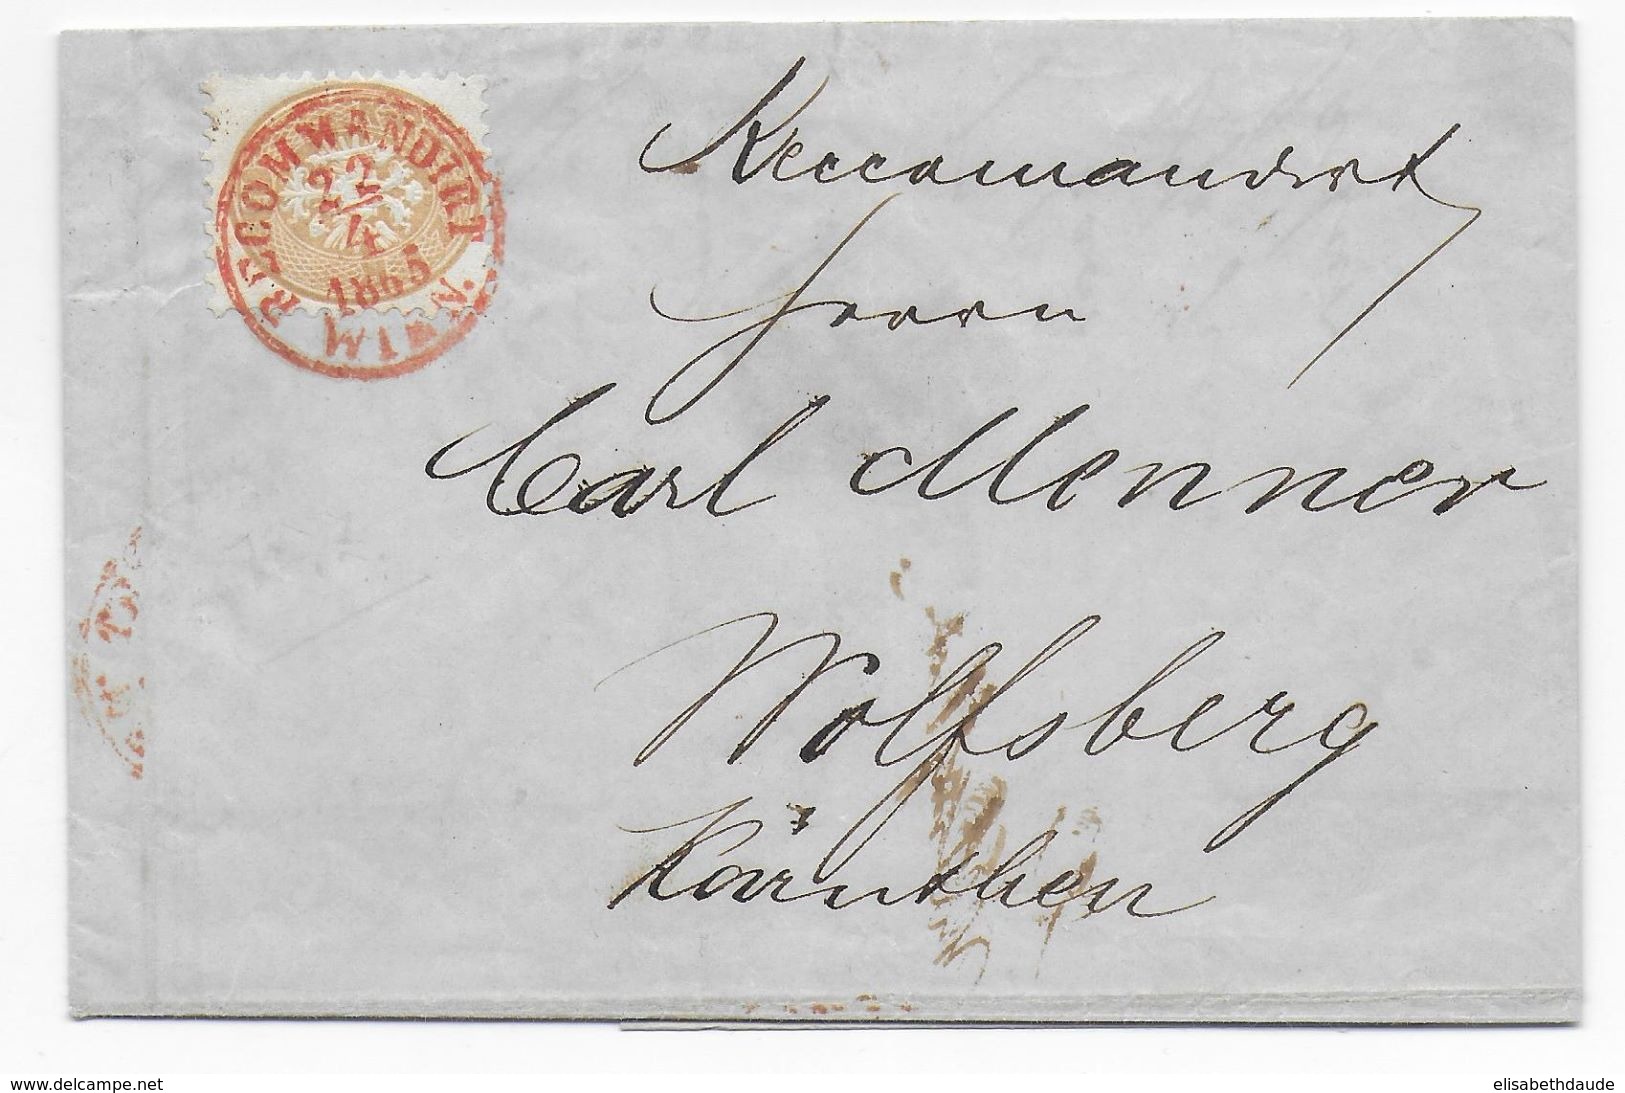 RECOMMANDIRT
22
4
1865
WIEN.
Reccomandirt
Herrn
Carl Menner
Wolfsberg
Kärnthen
www.delcampe.net
elisabethdaude